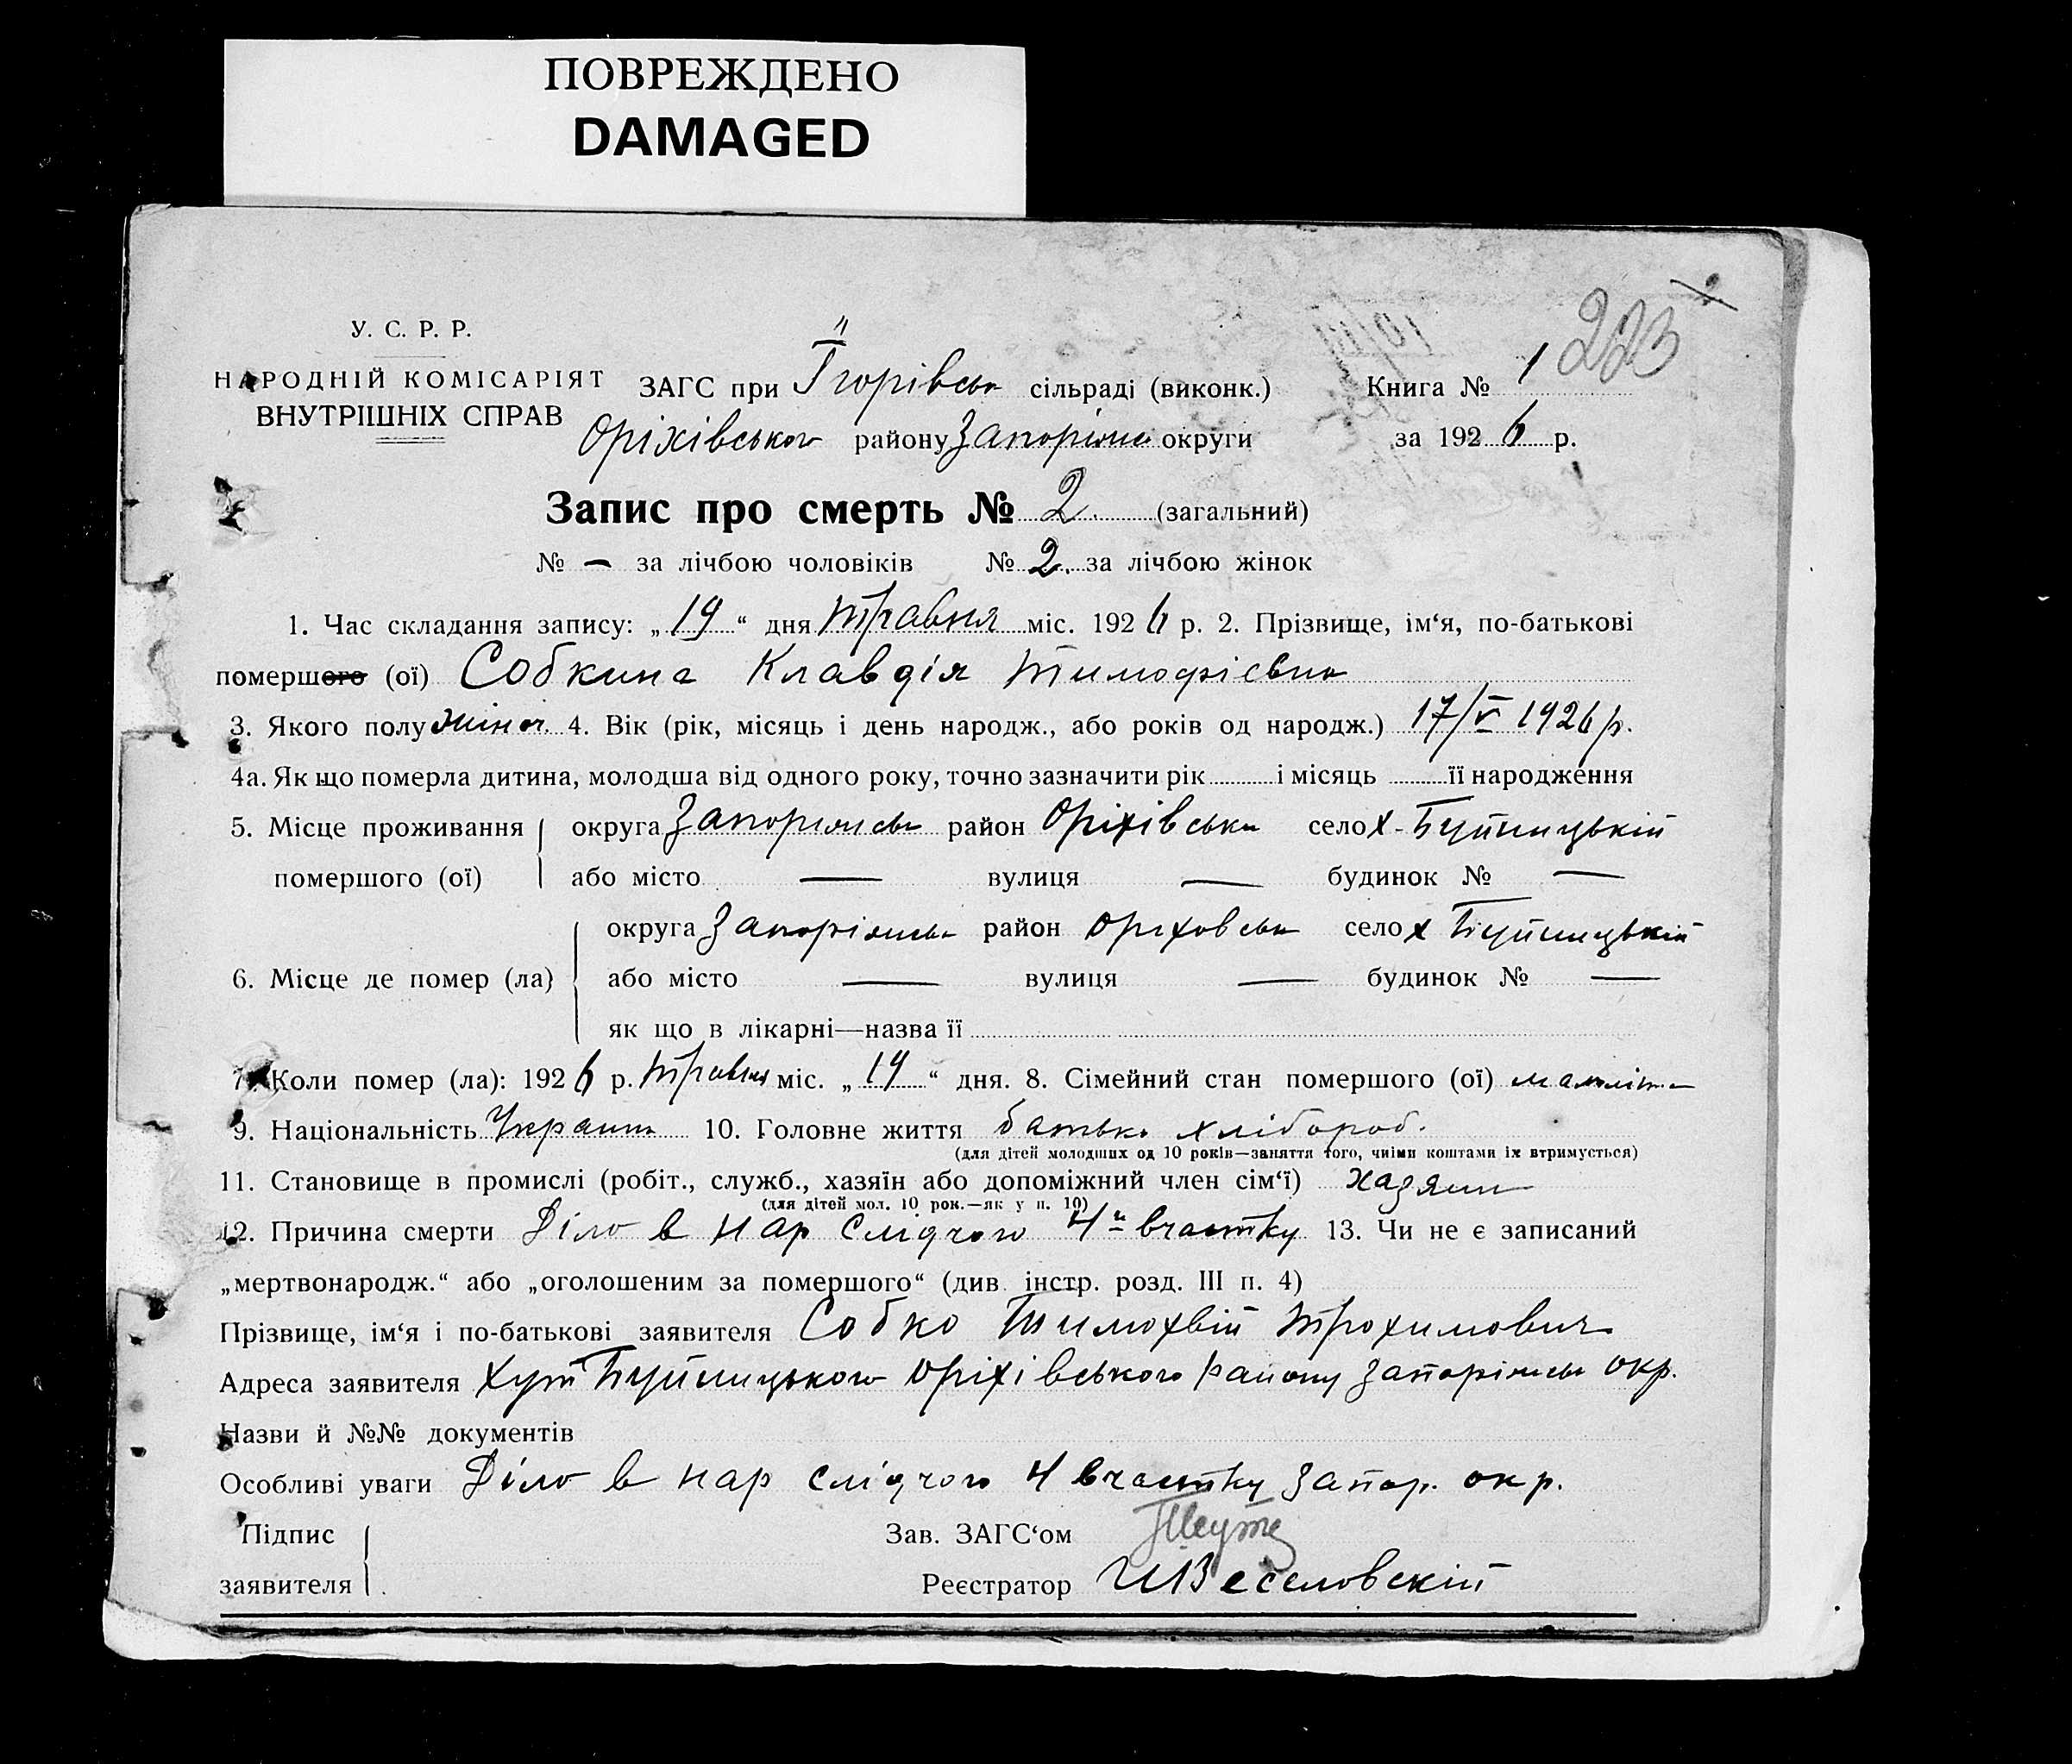 ПОВРЕЖДЕНО
DAMAGED
223
У. С. Р. Р.
НАРОДНІЙ КОМІСАРІЯТ
ВНУТРІШНІХ СПРАВ
ЗАГС при сільраді (виконк.) Книга № 1
Оріхівського району Запоріжс округи за 1926 р.
Запис про смерть № 2. (загальний)
№ — за лічбою чоловіків № 2. за лічбою жінок
1. Час складання запису: „19“ дня травня міс. 1926 р. 2. Прізвище, ім‘я, по-батькові
помершого (ої) Собкина Клавдія Тимофієвна
3. Якого полу жіноч. 4. Вік (рік, місяць і день народж., або років од народж.) 17/V 1926 р.
4а. Як що померла дитина, молодша від одного року, точно зазначити рік і місяць її народження
5. Місце проживання округа Запоріжськ район Оріхівськ село х-
помершого (ої) або місто — вулиця — будинок № —
округа Запоріжськ район Оріховськ село х
6. Місце де помер (ла) або місто — вулиця — будинок № —
як що в лікарні—назва її
7. Коли помер (ла): 1926 р. травня міс. „19“ дня. 8. Сімейний стан помершого (ої)
9. Національність Украин 10. Головне життя батько хлібороб.
(для дітей молодших од 10 років—заняття того, чиїми коштами їх втримується)
11. Становище в промислі (робіт., служб., хазяїн або допоміжний член сім‘ї) хазяин
(для дітей мол. 10 рок.—як у п. 10)
12. Причина смерти Діло в нар слідчого 4й вчастку 13. Чи не є записаний
„мертвонародж.“ або „оголошеним за помершого“ (див. інстр. розд. III п. 4)
Прізвище, ім‘я і по-батькові заявителя Собко Тимохвій Трохимович
Адреса заявителя Хут Оріхівського району Запоріжськ окр.
Назви й №№ документів
Особливі уваги Діло в нар слідчого 4 вчастку Запор. окр.
Підпис Зав. ЗАГС‘ом
заявителя Реєстратор Веселовскій